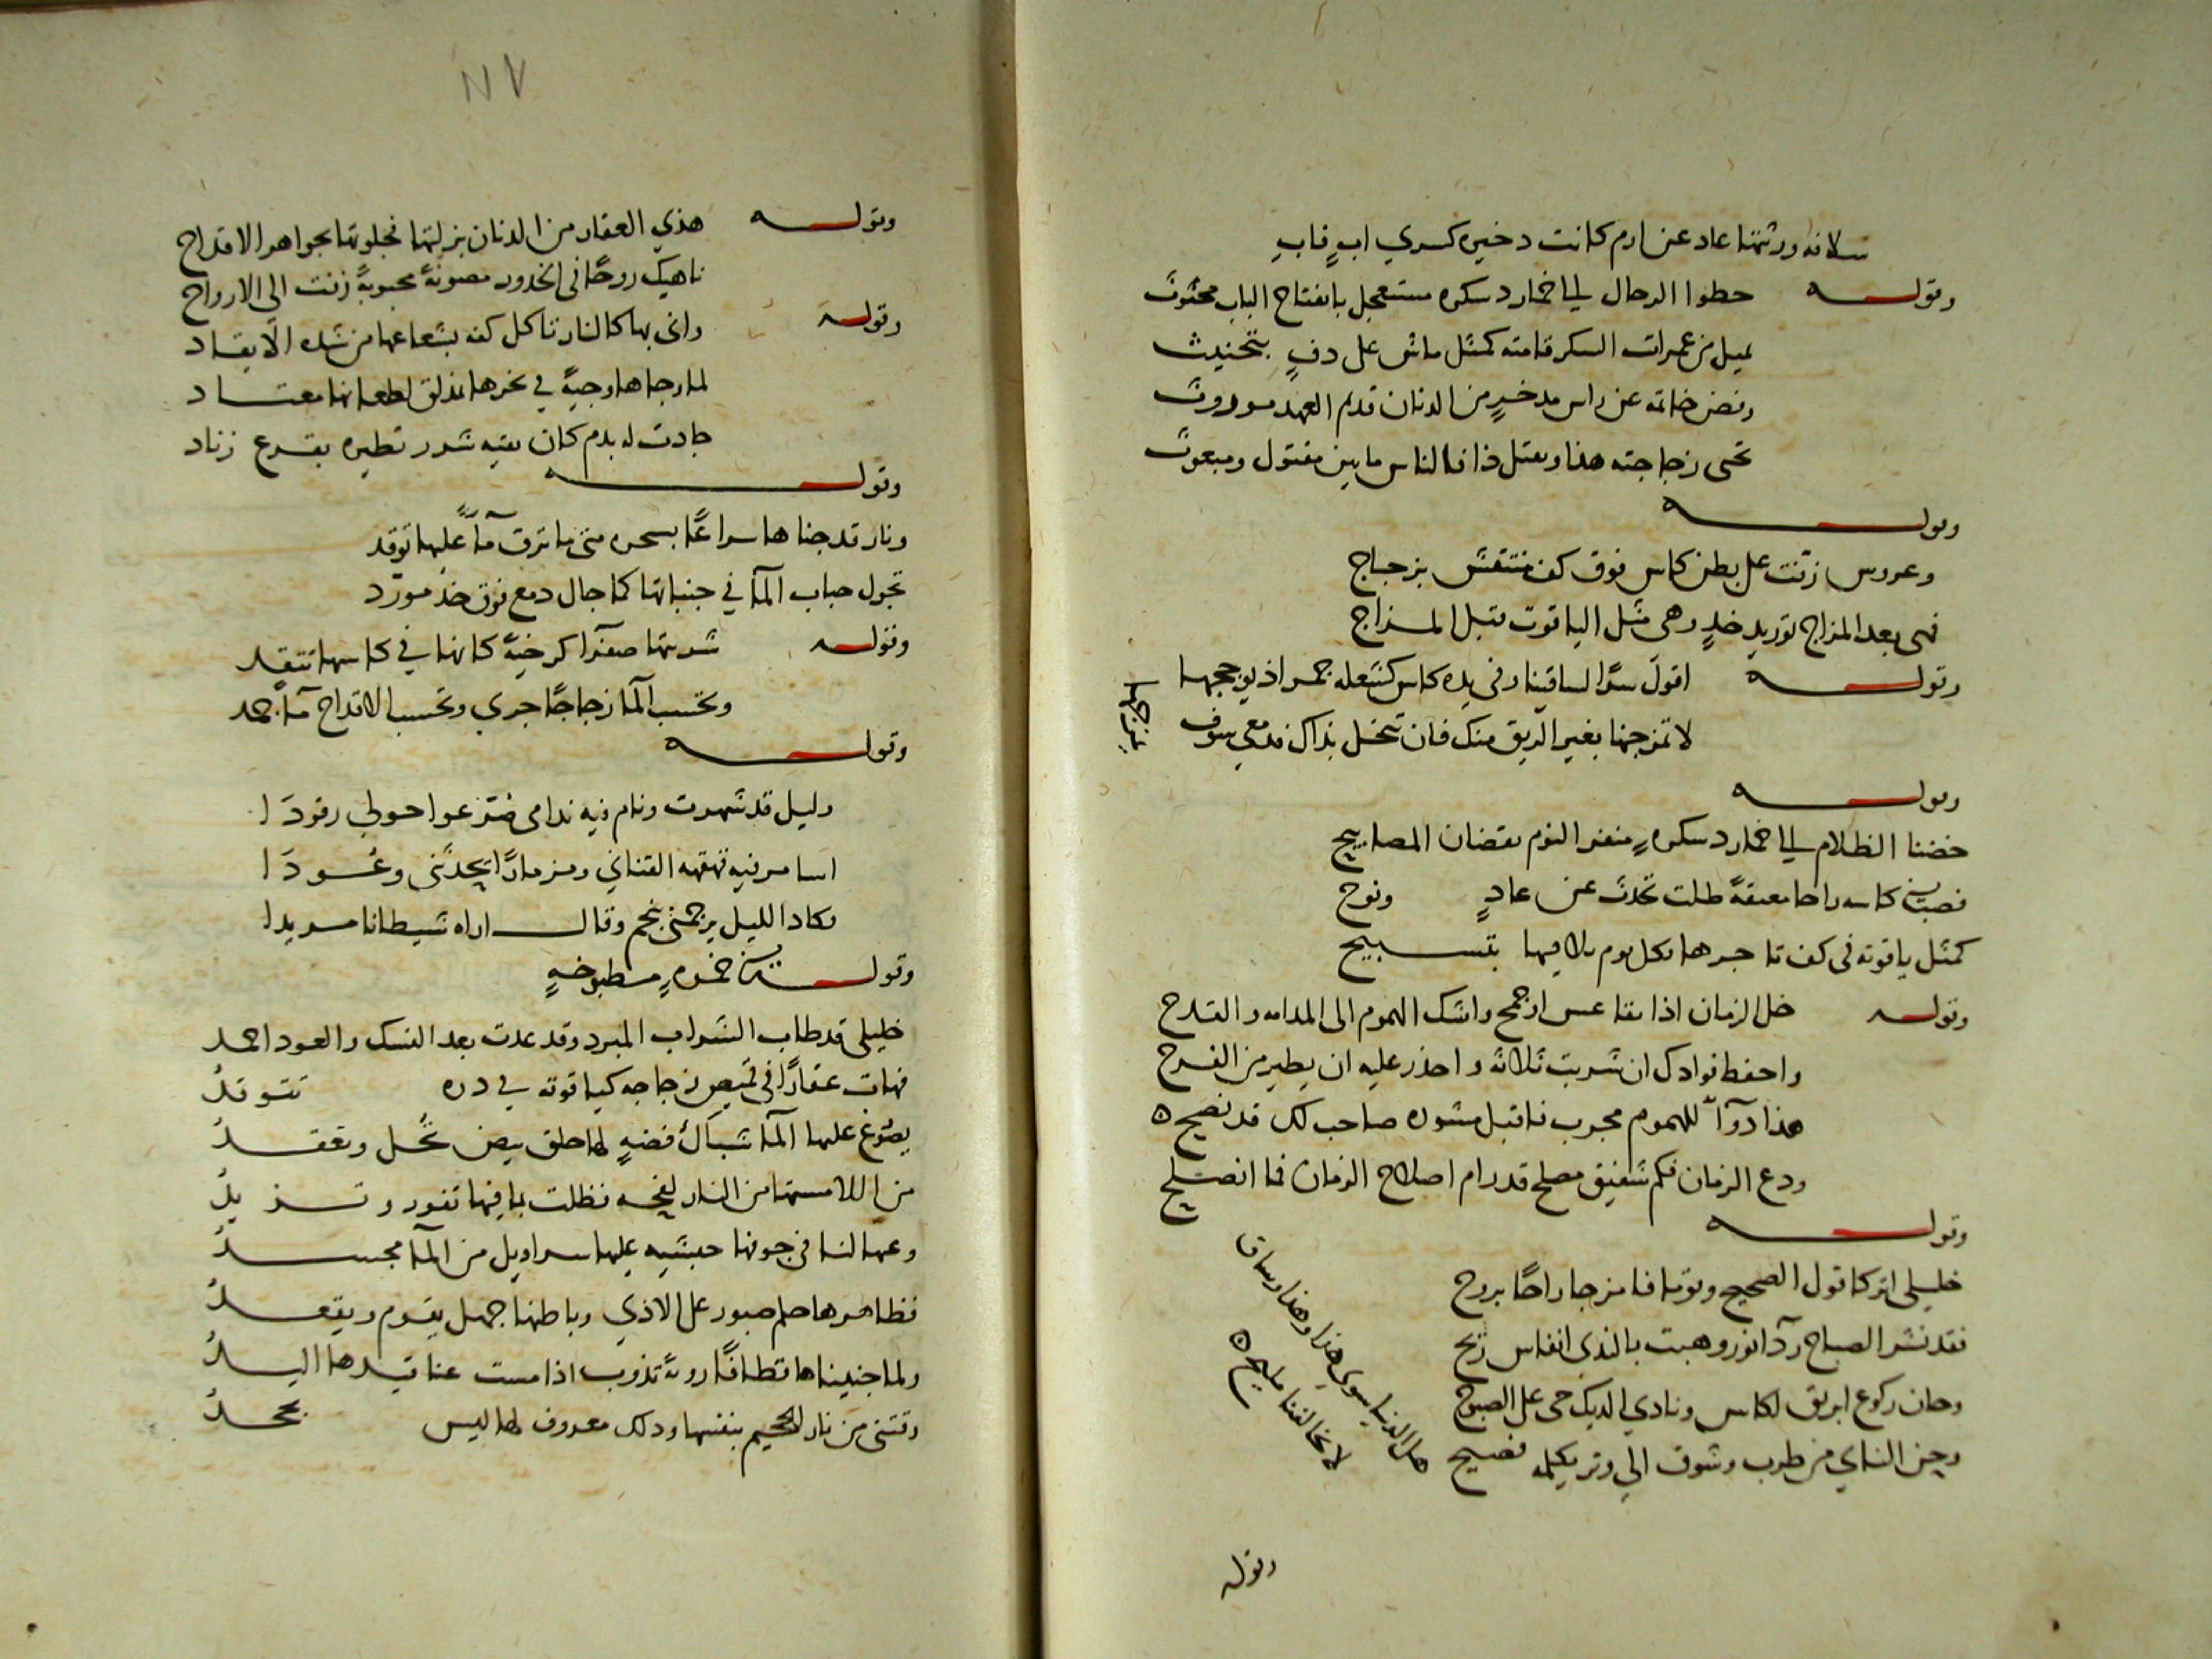 سلافه ورثتها عاد عن ارم كانت دخيره كسري اب قاب
وقوله حطوا الرحال الي خمار دسكره مستعجل بانفتاح الباب محثوث
لميل من غمرات السكر قامته كمثل ماش على دف بتخنيث
وفض خاتمه عن راس مدخر من الدنان قديم العهد موروث
تحيي زجاجته هذا وتقتل ذا فالناس ما بين مقتول ومبعوث
وقوله
وعروس زفت على بطن كاس فوق كف منتقش بزجاج
فهي بعد المزاج توريد خد وهي مثل الياقوت قبل المزاج
وقوله اقول سرا لساقينا وفي يده كاس كشعله جمر اذ يوججها
لا تمزجنها بغير الريق منك فان تبخل بذاك فدمعي سوف
يمزجها
وقوله
خضنا الظلام الي خمار دسكره منفر النوم يقضان المصابيح
فصب في كاسه راحا معتقة ظلت تحدث عن عاد ونوح
كمثل ياقوته في كف تاجرها بكل يوم يلاقيها بتسبيح
وقوله خل الزمان اذا تقاعس او جمح واشك الهموم الى المدامه والقدح
واحفظ فوادك ان شربت ثلاثة واحذر عليه ان يطير من الفرح
هذا دوآ للهموم مجرب فاقبل مشوره صاحب لك قد نصح
ودع الزمان فكم شفيق مصلح قد رام اصلاح الزمان فما انصلح
وقوله
خليلي اتركا قول الصحيح وقوما فامزجا راحا بروح
فقد نشر الصباح ردآ نور وهبت بالندى انفاس ريح
وحان ركوع ابريق لكاس ونادي الديك حى على الصبوح
وحن الناي من طرب وشوف الي وتر يكلمه فصيح
هل الدنيا سوى هذا وهذا وساق
لا يخالفنا مليح
وقوله
٨٧
وقوله هذي العقار من الدنان بزلتها فجلوتها بجواهر الاقداح
ناهيك روحا في الخدور مصونة محبوبة زفت الى الارواح
وقوله واتى بها كالنار تاكل كفه بشعاعها من شده الايقاد
لما وجاها وجية في نحرها بمذلق لطعانها معتاد
جادت له بدم كان بقيه شرر تطيره بقرع زناد
وقوله
ونار قدحناها سراعا بسحره متى ما ترق مآ عليها توقد
تجول حباب المآ في جنباتها كما جال دمع فوق خد مورد
وقوله شربتها صفرا كرخية كانها في كاسها تتقد
وتحسب المآ زجاجا جري وتحسب الاقداح مآ جمد
وقوله
وليل قد شهرت ونام فيه ندامى صرعوا حولي رقودا
اسامر فيه قهقهه القناني ومزمارا يحدثني وعودا
فكاد الليل يرجمني بنجم وقال اراه شيطانا مريدا
وقوله في خمره مطبوخه
خليلي قد طاب الشراب المبرد وقد عدت بعد النسك والعود احمد
فهات عقارا في قميص زجاجه كياقوته في دره تتوقد
يصوغ عليها المآ شباك فضه لها حلق بيض تحل وتعقد
من اللا مستها من النار لفحه فظلت بما فيها تفور وتزبد
وعهدنا لنا في جوفها حبشيه عليها سراويل من المآ مجسد
فظاهرها حلم صبور على الاذي وباطنها جهل يقوم ويقعد
ولما جنيناها قطافا روية تذوب اذا مست عناقيدها اليد
وقتني من نار الجحيم بنفسها وذلك معروف لها ليس يجحد